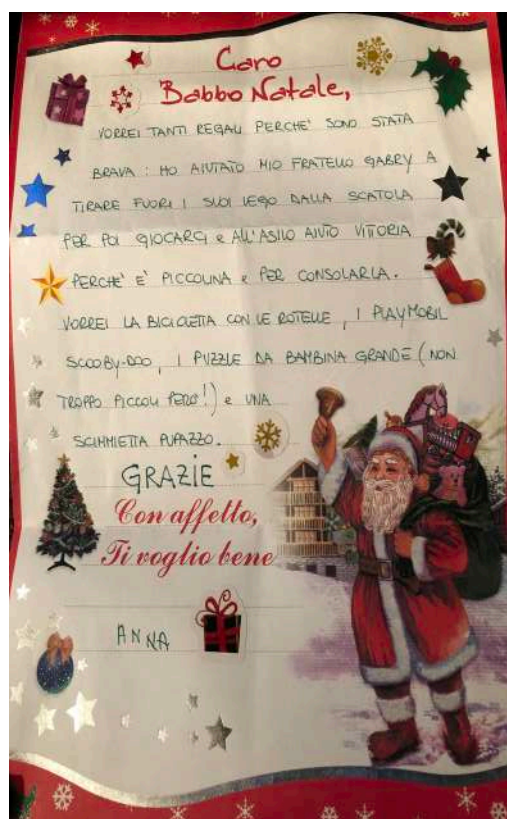 Caro
Babbo Natale,
VORREI TANTI REGALI PERCHE' SONO STATA
BRAVA : HO AIUTATO MIO FRATELLO GABRY A
TIRARE FUORI I SUOI LEGO DALLA SCATOLA
PER POI GIOCARCI e ALL'ASILO AIUTO VITTORIA
PERCHE' E' PICCOLINA e PER CONSOLARLA.
VORREI LA BICICLETTA CON LE ROTELLE, I PLAYMOBIL
SCOOBY-DOO, I PUZZLE DA BAMBINA GRANDE (NON
TROPPO PICCOLI PERO'!) e UNA
SCIMMIETTA PUPAZZO.
GRAZIE
Con affetto,
Ti voglio bene
ANNA